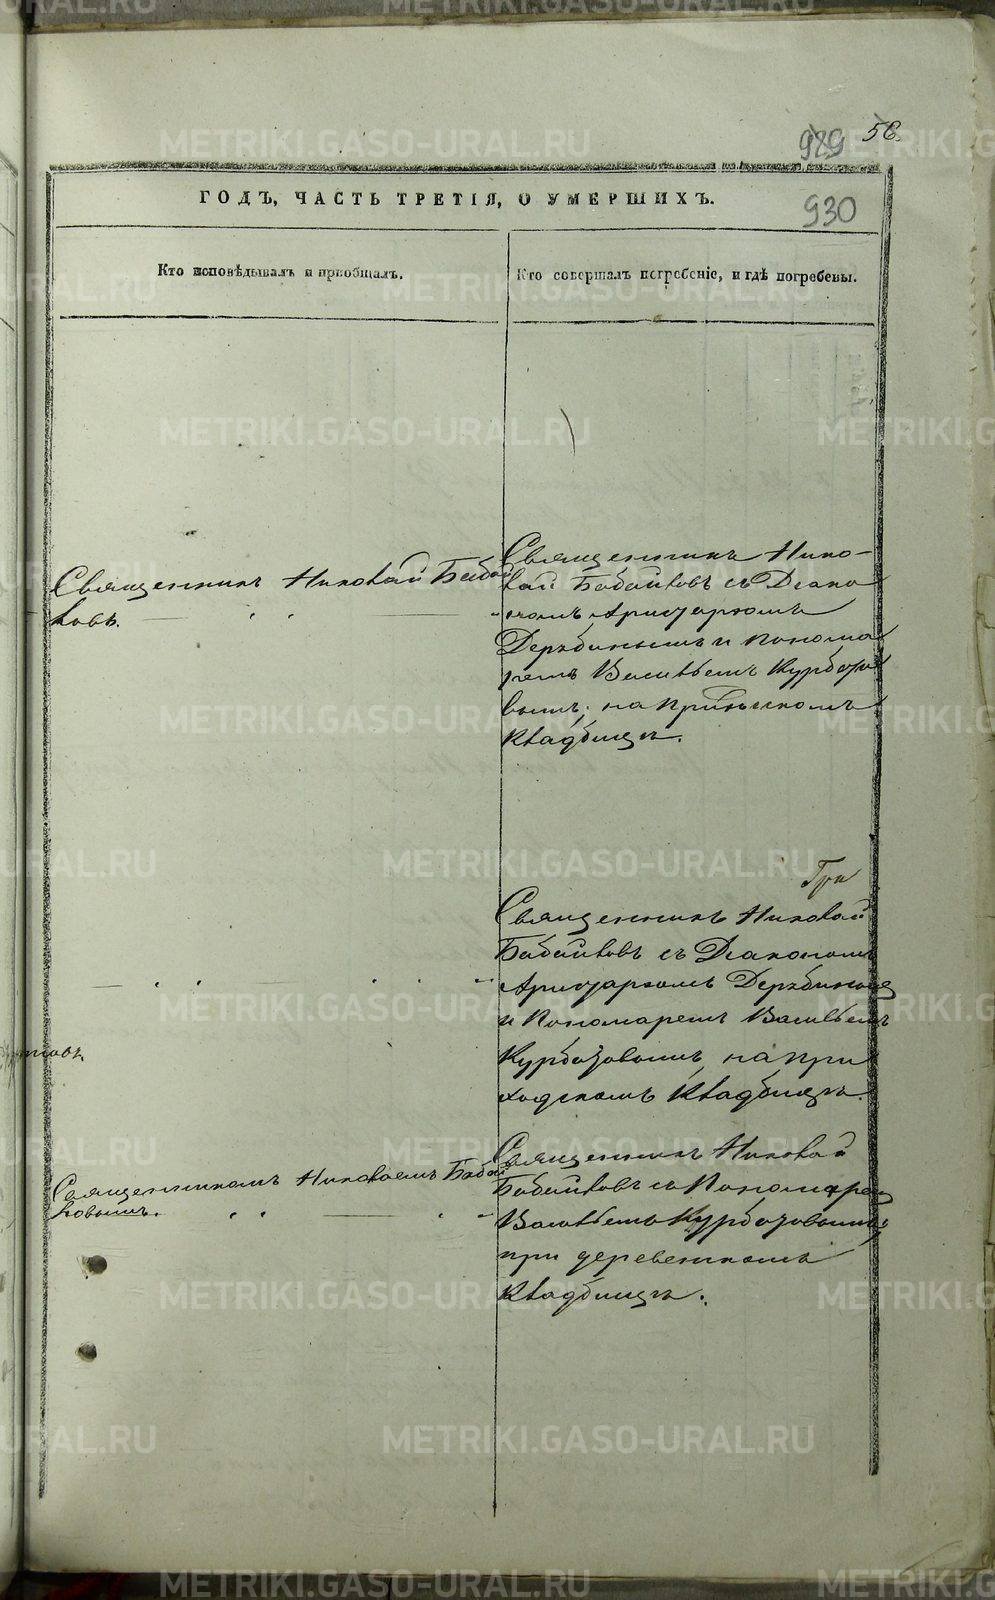 989 56.
ГОДЪ, ЧАСТЬ ТРЕТІЯ, О УМЕРШИХЪ.
930
Кто исповѣдывалъ и пріобщалъ.
Кто совершалъ погребеніе, и гдѣ погребены.
Священникъ Николай Бабай
ковъ.
Священникъ Нико-
лай Бабайковъ съ Діако
номъ Аристархомъ
Дерябинымъ и Понома
ремъ Васильемъ Курбато
вымъ; на Приходскомъ
Кладбищѣ.
Гри
Священникъ Николай
Бабайковъ съ Діакономъ
Аристархомъ Дерябинымъ
и Пономаремъ Васильемъ
Курбатовымъ, на При
ходскомъ Кладбищѣ.
Священникомъ Николаемъ Бабай
ковымъ.
Священникъ Николай
Бабайковъ съ Пономаремъ
Васильемъ Курбатовымъ;
при деревенскомъ
Кладбищѣ.
METRIKI.GASO-URAL.RU